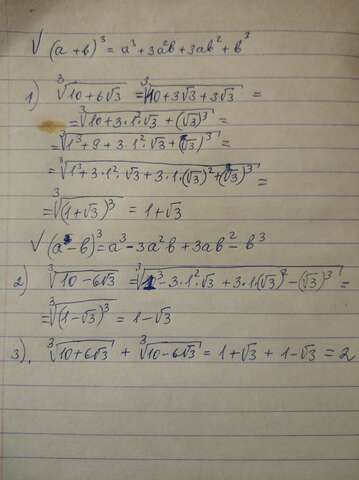 √ (a+b)³ = a³+3a²b+3ab²+b³
1) ∛(10+6√3) = ∛(10+3√3+3√3) =
= ∛(10+3·1²·√3+(√3)³) =
= ∛(1³+9+3·1²·√3+(√3)³) =
= ∛(1³+3·1²·√3+3·1·(√3)²+(√3)³) =
= ∛((1+√3)³) = 1+√3
√ (a-b)³ = a³-3a²b+3ab²-b³
2) ∛(10-6√3) = ∛(1³-3·1²·√3+3·1·(√3)²-(√3)³) =
= ∛((1-√3)³) = 1-√3
3). ∛(10+6√3) + ∛(10-6√3) = 1+√3+1-√3 = 2